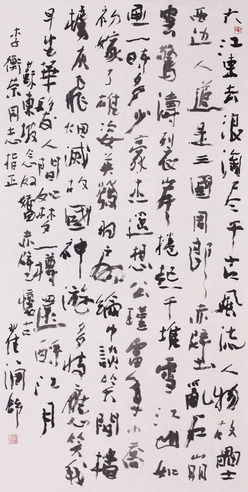 大江東去浪淘盡千古風流人物故壘
西边人道是三國周郎赤壁乱石崩
雲驚濤裂岸捲起千堆雪江山如
画一時多少豪杰遥想公瑾當年小喬
初嫁了雄姿英發羽扇綸巾談笑間檣
櫓灰飛烟滅故國神遊多情應笑我
早生華髮人間如夢一樽還酹江月
蘇東坡念奴嬌赤壁懷古
同志指正